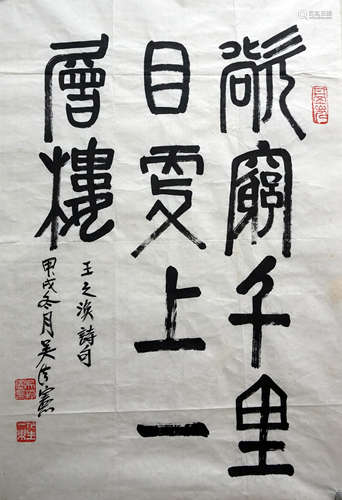 欲窮千里
目更上一
層樓
王之渙詩句
甲戌冬月吴憲